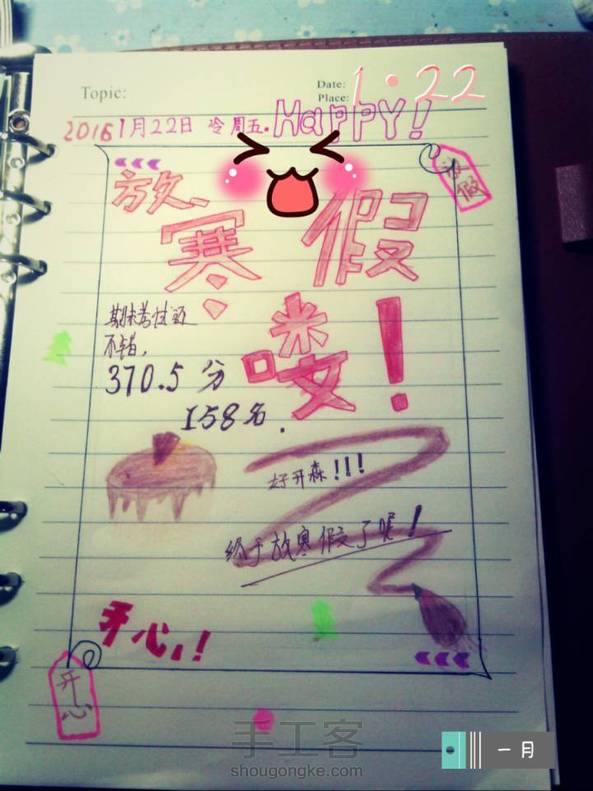 Topic:
Date:
Place:
1·22
2016 1月22日 冷 周五.
HAPPY!
放假
放寒假
喽!
期末考试还
不错,
370.5分
158名.
好开森!!!
终于放寒假了呢!
开心!!
开心
手工客
shougongke.com
一月